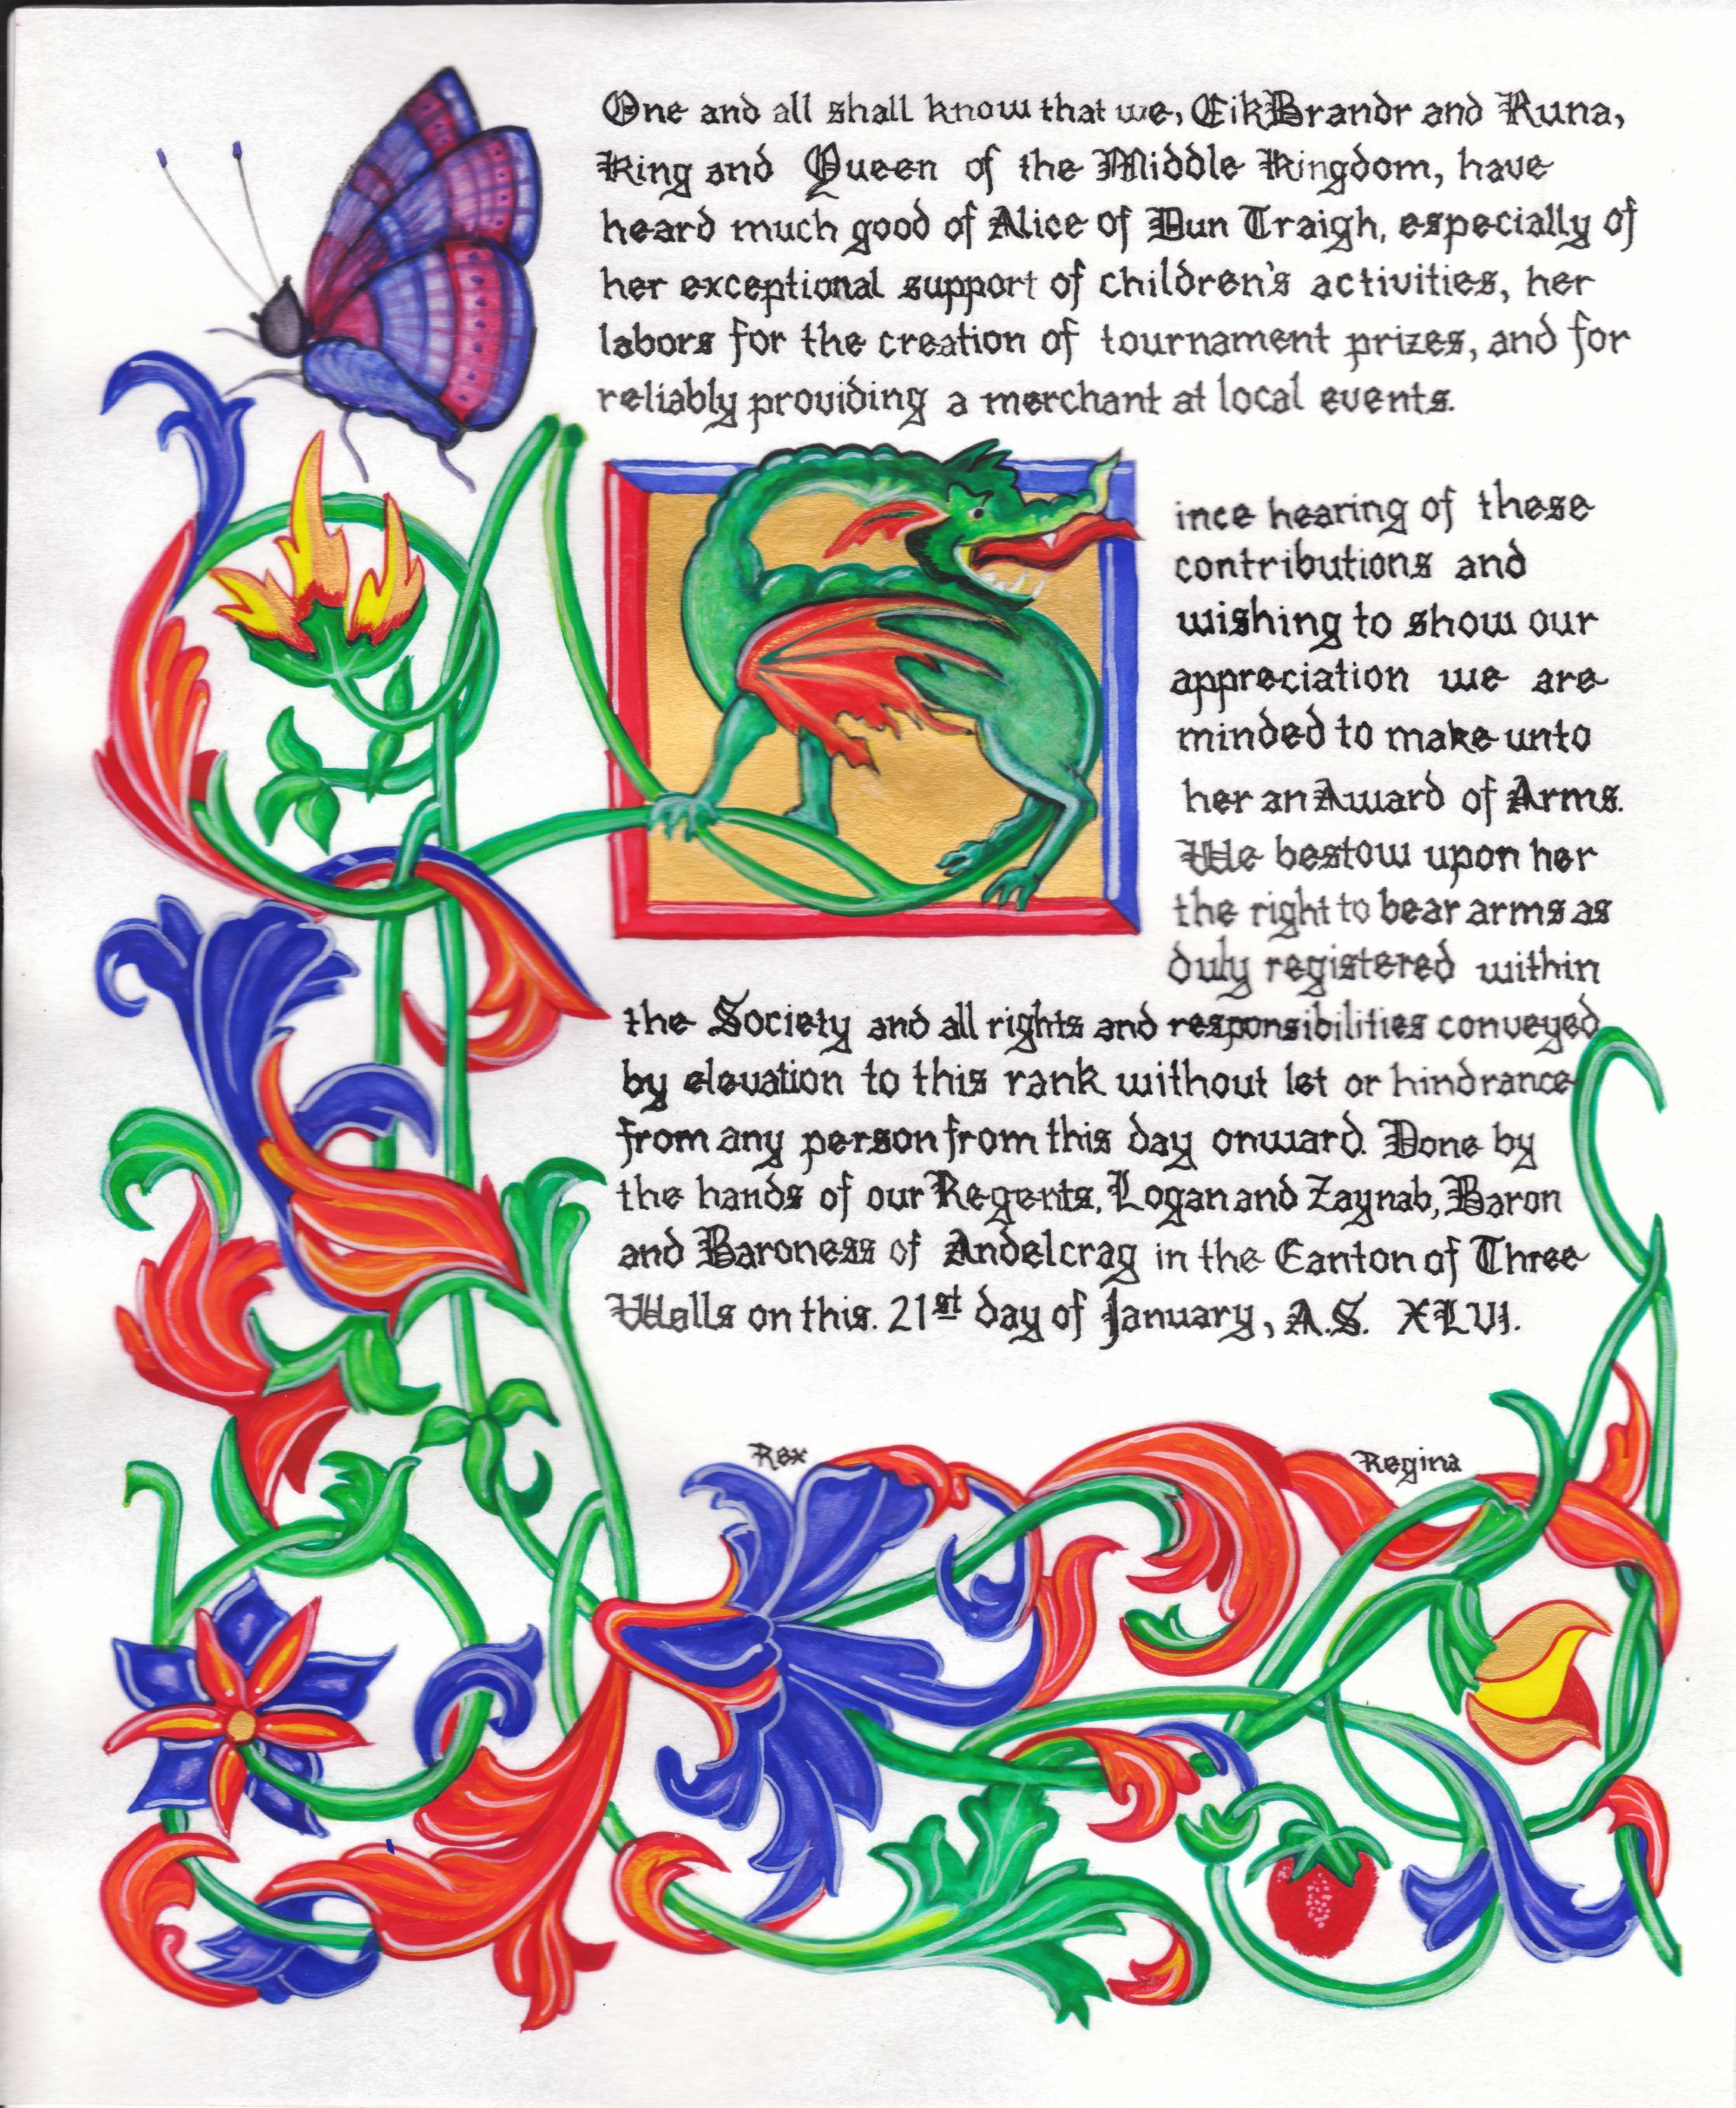 One and all shall know that we, EikBrandr and Runa,
King and Queen of the Middle Kingdom, have
heard much good of Alice of Dun Traigh, especially of
her exceptional support of children's activities, her
labors for the creation of tournament prizes, and for
reliably providing a merchant at local events.
S
ince hearing of these
contributions and
wishing to show our
appreciation we are
minded to make unto
her an Award of Arms.
We bestow upon her
the right to bear arms as
duly registered within
the Society and all rights and responsibilities conveyed
by elevation to this rank without let or hindrance
from any person from this day onward. Done by
the hands of our Regents, Logan and Zaynab, Baron
and Baroness of Andelcrag in the Canton of Three
Walls on this. 21st day of January, A.S. XLVI.
Rex
Regina